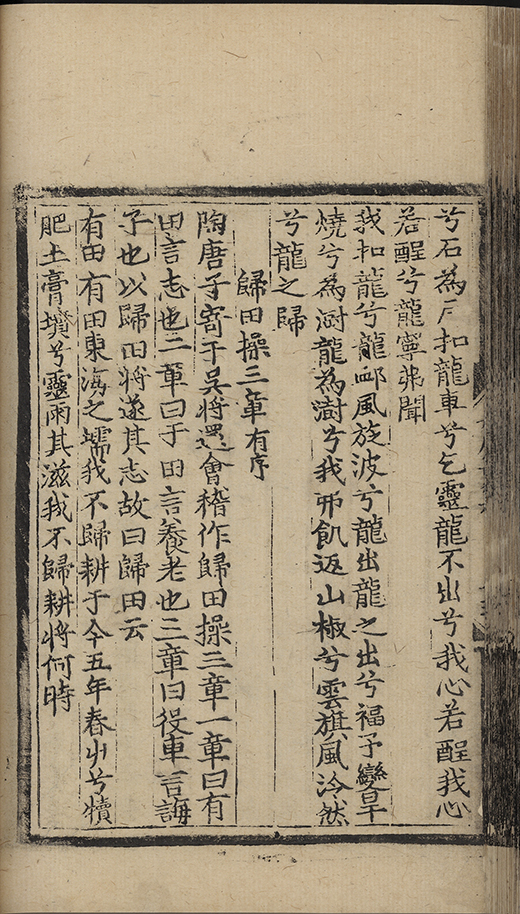 兮石為戶扣龍車兮乞靈龍不出兮我心若酲我心
若酲兮龍寧弗聞
我扣龍兮龍邮風旋波兮龍出龍之出兮福予孌旱
燒兮為澍龍為澍兮我邪飢返山椒兮雲旗風泠然
兮龍之歸
歸田操三章有序
陶唐子寄于吳將還會稽作歸田操三章一章曰有
田言志也二章曰于田言養老也三章曰役車言誨
子也以歸田將遂其志故曰歸田云
有田有田東海之壖我不歸耕于今五年春屮兮犢
肥土膏墳兮靈雨其滋我不歸耕將何時